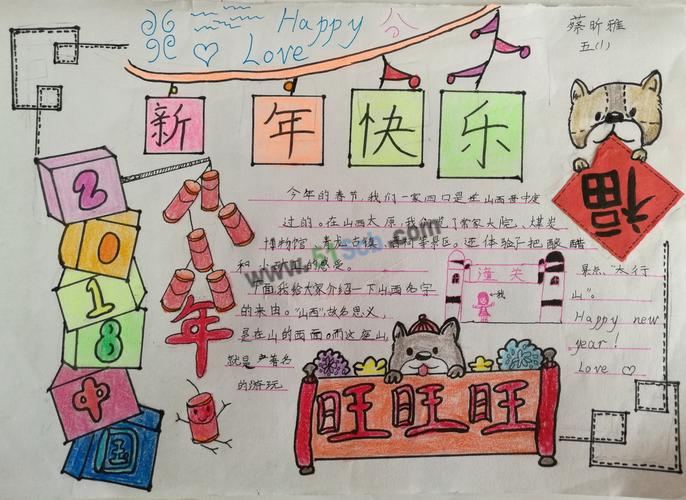 Happy
Love
蔡昕雅
五(1)
新年快乐
2018中国
年
福
今年的春节,我们一家四口是在山西省中度
过的。在山西太原,我们
常家大院、煤炭
博物馆、青龙古镇
景区。还体验了把酿醋
和
的感受。
下面我给大家介绍一下山西名字
的来由。"山西"故名思义,
是在山的西面。而这座山
就是
著名
的游玩
景点"太行
山"。
Happy new
year!
Love
渣关
我
旺旺旺
www.51scb.com